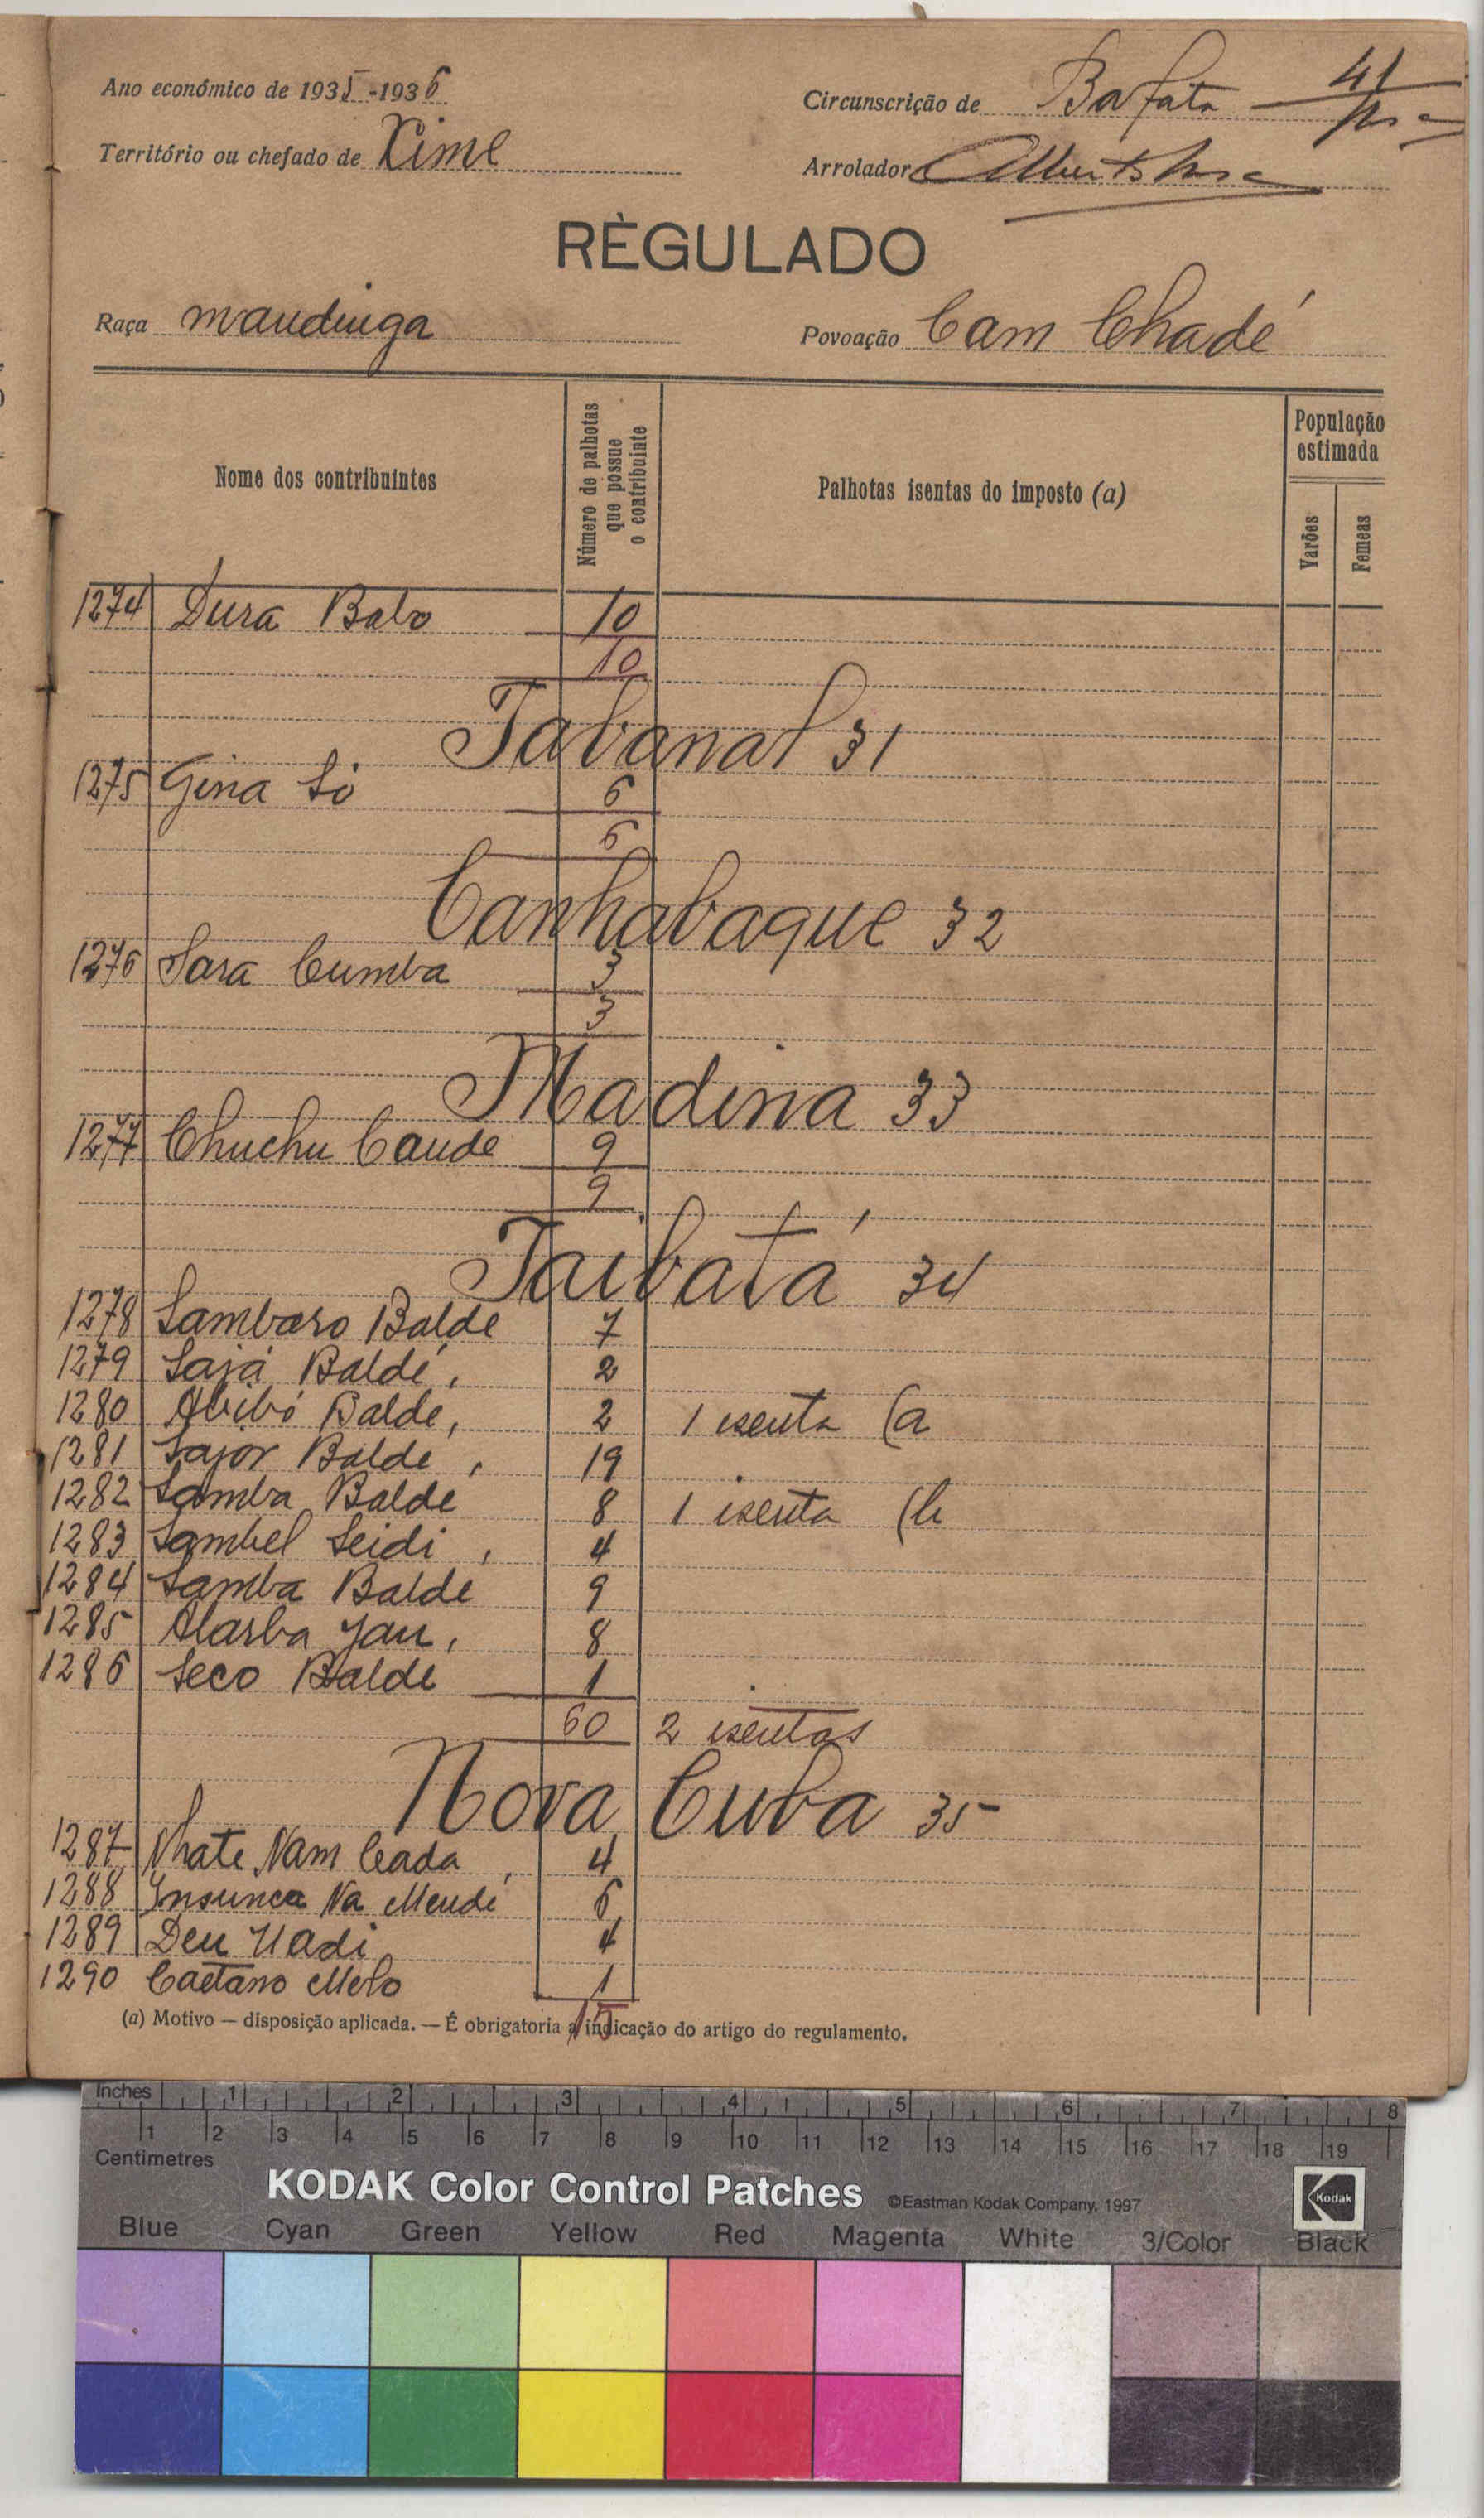 Ano económico de 1935-1936
Circunscrição de Bafata 41
Território ou chefado de Xime
Arrolador
RÈGULADO
Raça mandinga
Povoação Cam Chadé
Nome dos contribuintes
Número de palhotas que possue o contribuinte
Palhotas isentas do imposto (a)
População estimada
Varões
Femeas
1274 Dura Balo 10
10
Tabanal 31
1275 Gina Só 6
6
Canhabaque 32
1276 Sara Cumba 3
3
Madina 33
1277 Chuchu Caude 9
9
Taibatá 34
1278 Sambaro Balde 7
1279 Sajá Baldé, 2
1280 Abibó Balde, 2 1 isenta (a
1281 Sajor Balde, 19
1282 Samba Baldé 8 1 isenta (b
1283 Sambel Seidi, 4
1284 Samba Baldé 9
1285 Alarba Jau, 8
1286 Seco Balde 1
60 2 isentas
Nova Cuba 35
1287 Nhate Nam Ceada, 4
1288 Insunca Na Mendé 6
1289 Deu Uadi 4
1290 Caetano Melo 1
15
(a) Motivo — disposição aplicada. — É obrigatoria a indicação do artigo do regulamento.
Inches 1 2 3 4 5 6 7 8
1 2 3 4 5 6 7 8 9 10 11 12 13 14 15 16 17 18 19
Centimetres
KODAK Color Control Patches ©Eastman Kodak Company, 1997 Kodak
Blue Cyan Green Yellow Red Magenta White 3/Color Black